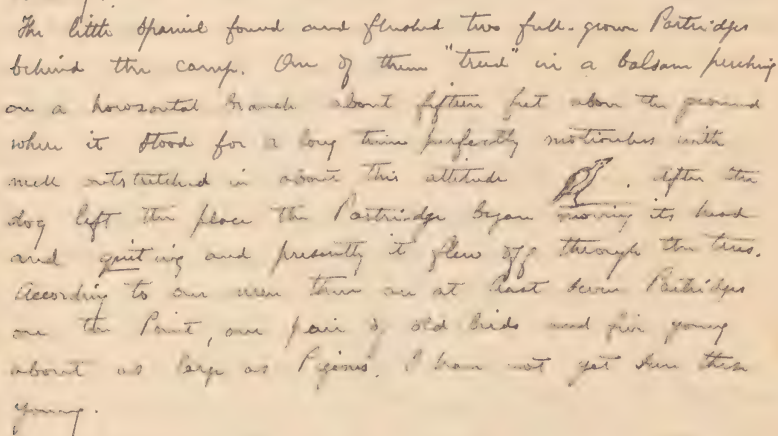 The little Spaniel found and flushed two full-grown Partridges
behind the camp. One of them "treed" in a balsam perching
on a horozontal branch about fifteen feet above the ground
where it stood for a long time perfectly motionless with
neck outstretched in about this attitude . After the
dog left the place the Partridge began moving its head
and quiting and presently it flew off through the trees.
According to our men there are at least seven Partridges
on the Point, one pair of old birds and five young
about as large as Pigeons. I have not yet seen these
young.